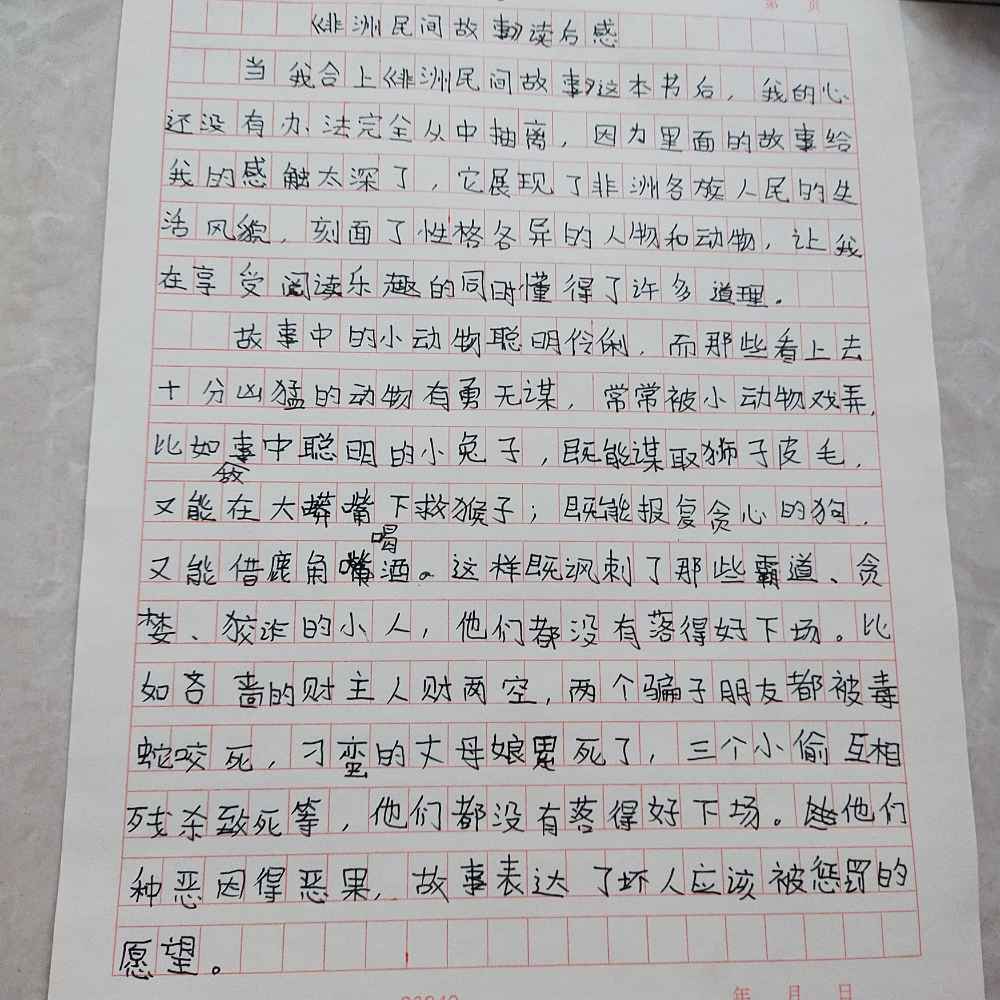 第 页
《非洲民间故事》读后感
当我合上《非洲民间故事》这本书后，我的心
还没有办法完全从中抽离，因为里面的故事给
我的感触太深了，它展现了非洲各族人民的生
活风貌，刻面了性格各异的人物和动物，让我
在享受阅读乐趣的同时懂得了许多道理。
故事中的小动物聪明伶俐，而那些看上去
十分凶猛的动物有勇无谋，常常被小动物戏弄，
比如故事中聪明的小兔子，既能谋取狮子皮毛，
又能在大蟒嘴下救猴子；既能报复贪心的狗，
又能借鹿角喝酒。这样既讽刺了那些霸道、贪
婪、狡诈的小人，他们都没有落得好下场。比
如吝啬的财主人财两空，两个骗子朋友都被毒
蛇咬死，刁蛮的丈母娘累死了，三个小偷互相
残杀致死等，他们都没有落得好下场。他们
种恶因得恶果，故事表达了坏人应该被惩罚的
愿望。
年 月 日